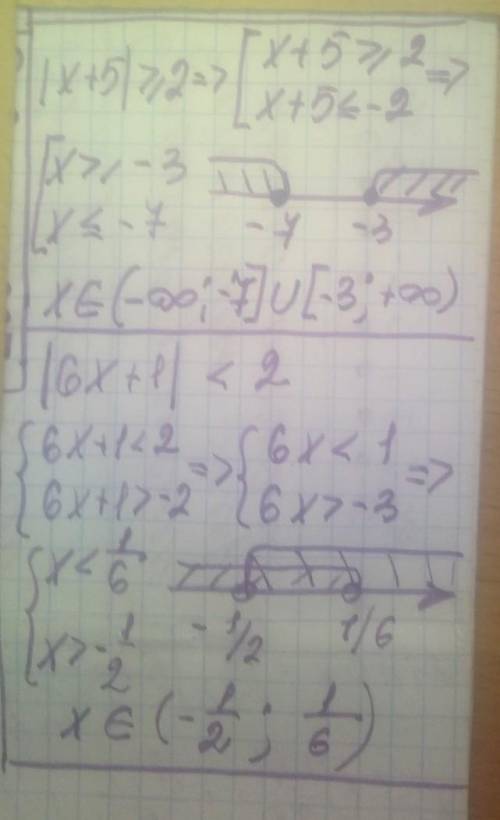 |x+5|⩾2=> [x+5⩾2 =>
[x+5≤-2
[x⩾-3
[x≤-7 -7 -3
x∈(-∞;-7]∪[-3;+∞)
|6x+1| < 2
{6x+1<2 => {6x<1 =>
{6x+1>-2 {6x>-3
{x<1/6
{x>-1/2 -1/2 1/6
x∈(-1/2; 1/6)